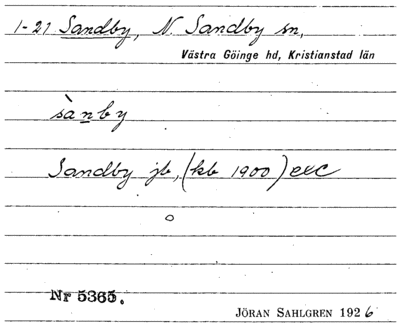 1-21 Sandby, N. Sandby sn,
Västra Göinge hd, Kristianstad län
sànby
Sandby jb, (kb 1900) exc
Nr 5365.
JÖRAN SAHLGREN 1926